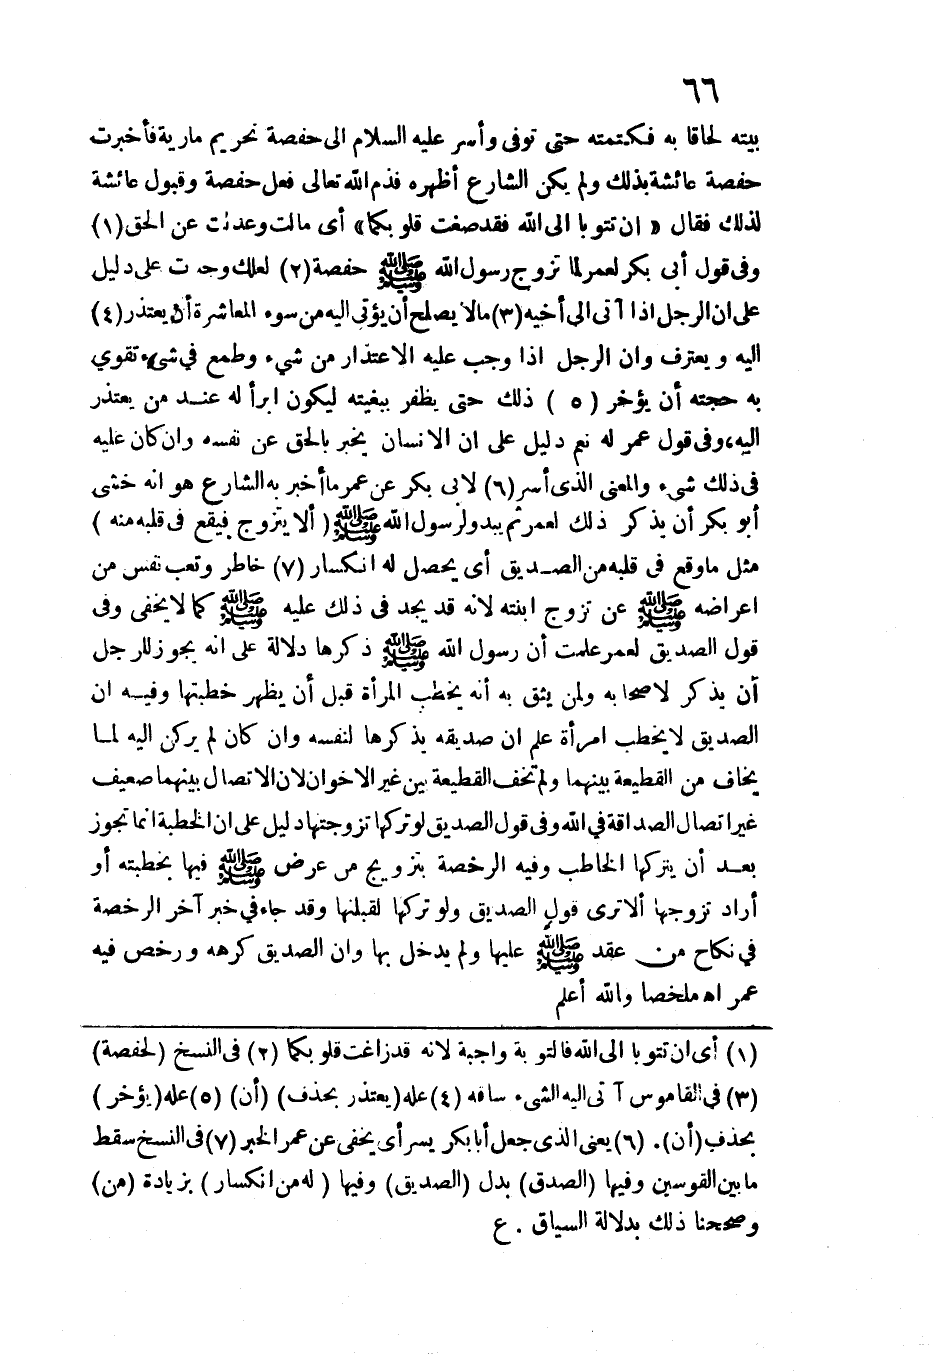 ٦٦
بيته لحاقا به فكتمته حتى توفى وأسر عليه السلام الى حفصة تحريم مارية فأخبرت
حفصة عائشة بذلك ولم يكن الشارع أظهره فذم الله تعالى فعل حفصة وقبول عائشة
لذلك فقال « ان تتوبا الى الله فقد صغت قلوبكما» أى مالت وعدلت عن الحق (١)
وفى قول أبى بكر لعمر لما تزوج رسول الله ﷺ حفصة (٢) لعلك وجدت على دليل
على ان الرجل اذا آتى الى أخيه (٣) مالا يصلح أن يؤتى اليه من سوء المعاشرة أن يعتذر (٤)
اليه ويعترف وان الرجل اذا وجب عليه الاعتذار من شىء وطمع في شىء تقوي
به حجته أن يؤخر ( ٥ ) ذلك حتى يظفر ببغيته ليكون ابرأ له عند من يعتذر
اليه، وفى قول عمر له نعم دليل على ان الانسان يخبر بالحق عن نفسه وان كان عليه
فى ذلك شىء والمعنى الذى أسر (٦) لابى بكر عن عمر ما أخبر به الشارع هو انه خشى
أبو بكر أن يذكر ذلك لعمر ثم يبدو لرسول الله ﷺ ( ألا يتزوج فيقع فى قلبه منه )
مثل ما وقع فى قلبه من الصديق أى يحصل له انكسار (٧) خاطر وتعب نفس من
اعراضه ﷺ عن تزوج ابنته لانه قد يجد فى ذلك عليه ﷺ كما لا يخفى وفى
قول الصديق لعمر علمت أن رسول الله ﷺ ذكرها دلالة على انه يجوز للرجل
أن يذكر لاصحابه ولمن يثق به أنه يخطب المرأة قبل أن يظهر خطبتها وفيه ان
الصديق لا يخطب امرأة علم ان صديقه يذكرها لنفسه وان كان لم يركن اليه لما
يخاف من القطيعة بينهما ولم تخف القطيعة بين غير الاخوان لان الاتصال بينهما ضعيف
غير اتصال الصداقة في الله وفى قول الصديق لو تركها تزوجتها دليل على ان الخطبة انما تجوز
بعد أن يتركها الخاطب وفيه الرخصة بتزويج من عرض ﷺ فيها بخطبته أو
أراد تزوجها ألا ترى قول الصديق ولو تركها لقبلتها وقد جاء في خبر آخر الرخصة
في نكاح من عقد ﷺ عليها ولم يدخل بها وان الصديق كرهه ورخص فيه
عمر اه ملخصا والله أعلم
(١) أى ان تتوبا الى الله فالتوبة واجبة لانه قد زاغت قلوبكما (٢) فى النسخ (لحفصة)
(٣) في القاموس آتى اليه الشىء ساقه (٤) عله (يعتذر بحذف) (أن) (٥) عله (يؤخر)
بحذف (أن). (٦) يعنى الذى جعل أبا بكر يسر أى يخفى عن عمر الخبر (٧) فى النسخ سقط
ما بين القوسين وفيها (الصدق) بدل (الصديق) وفيها ( له من انكسار ) بزيادة (من)
وصححنا ذلك بدلالة السياق . ع